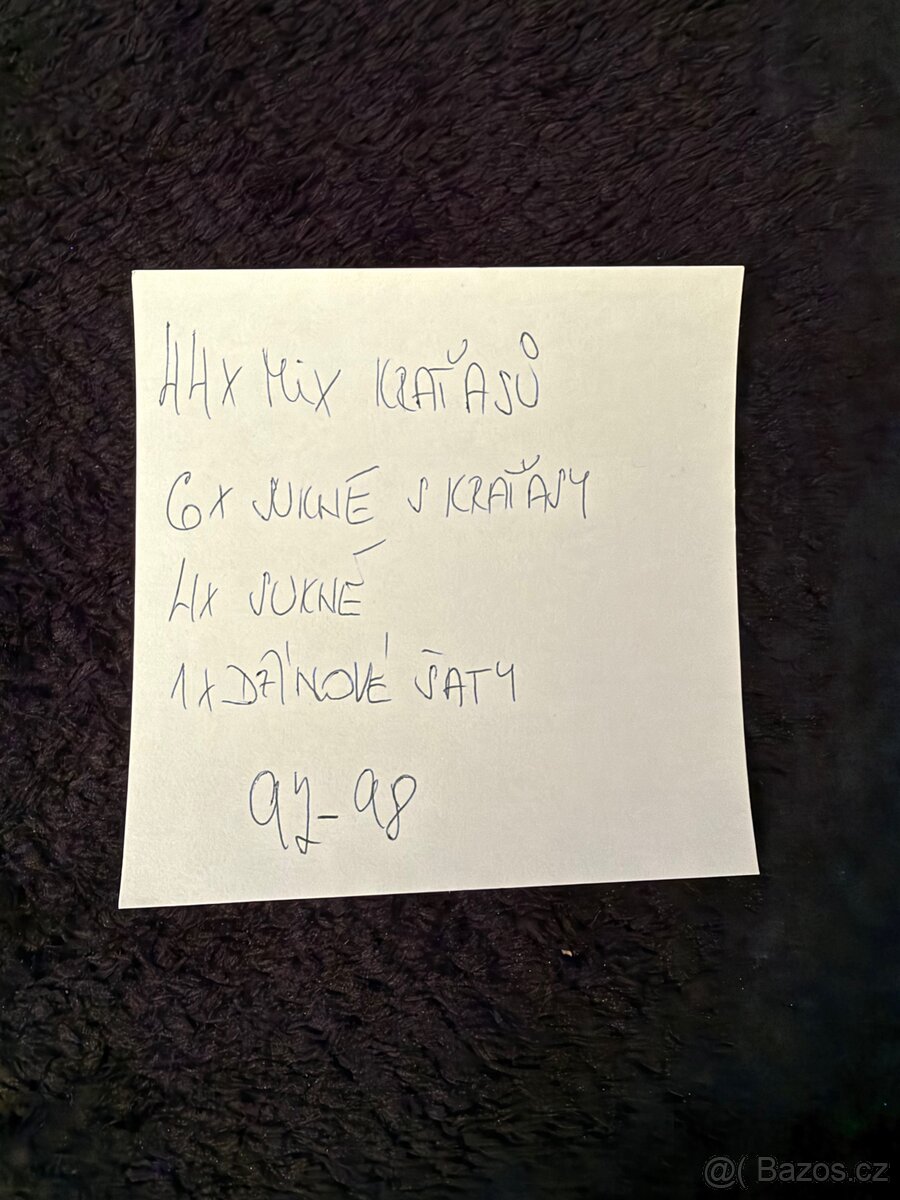 44x Mix KRAŤASŮ
6x SUKNĚ S KRAŤASY
4x SUKNĚ
1x DŽÍNOVÉ ŠATY
92-98
@( Bazos.cz